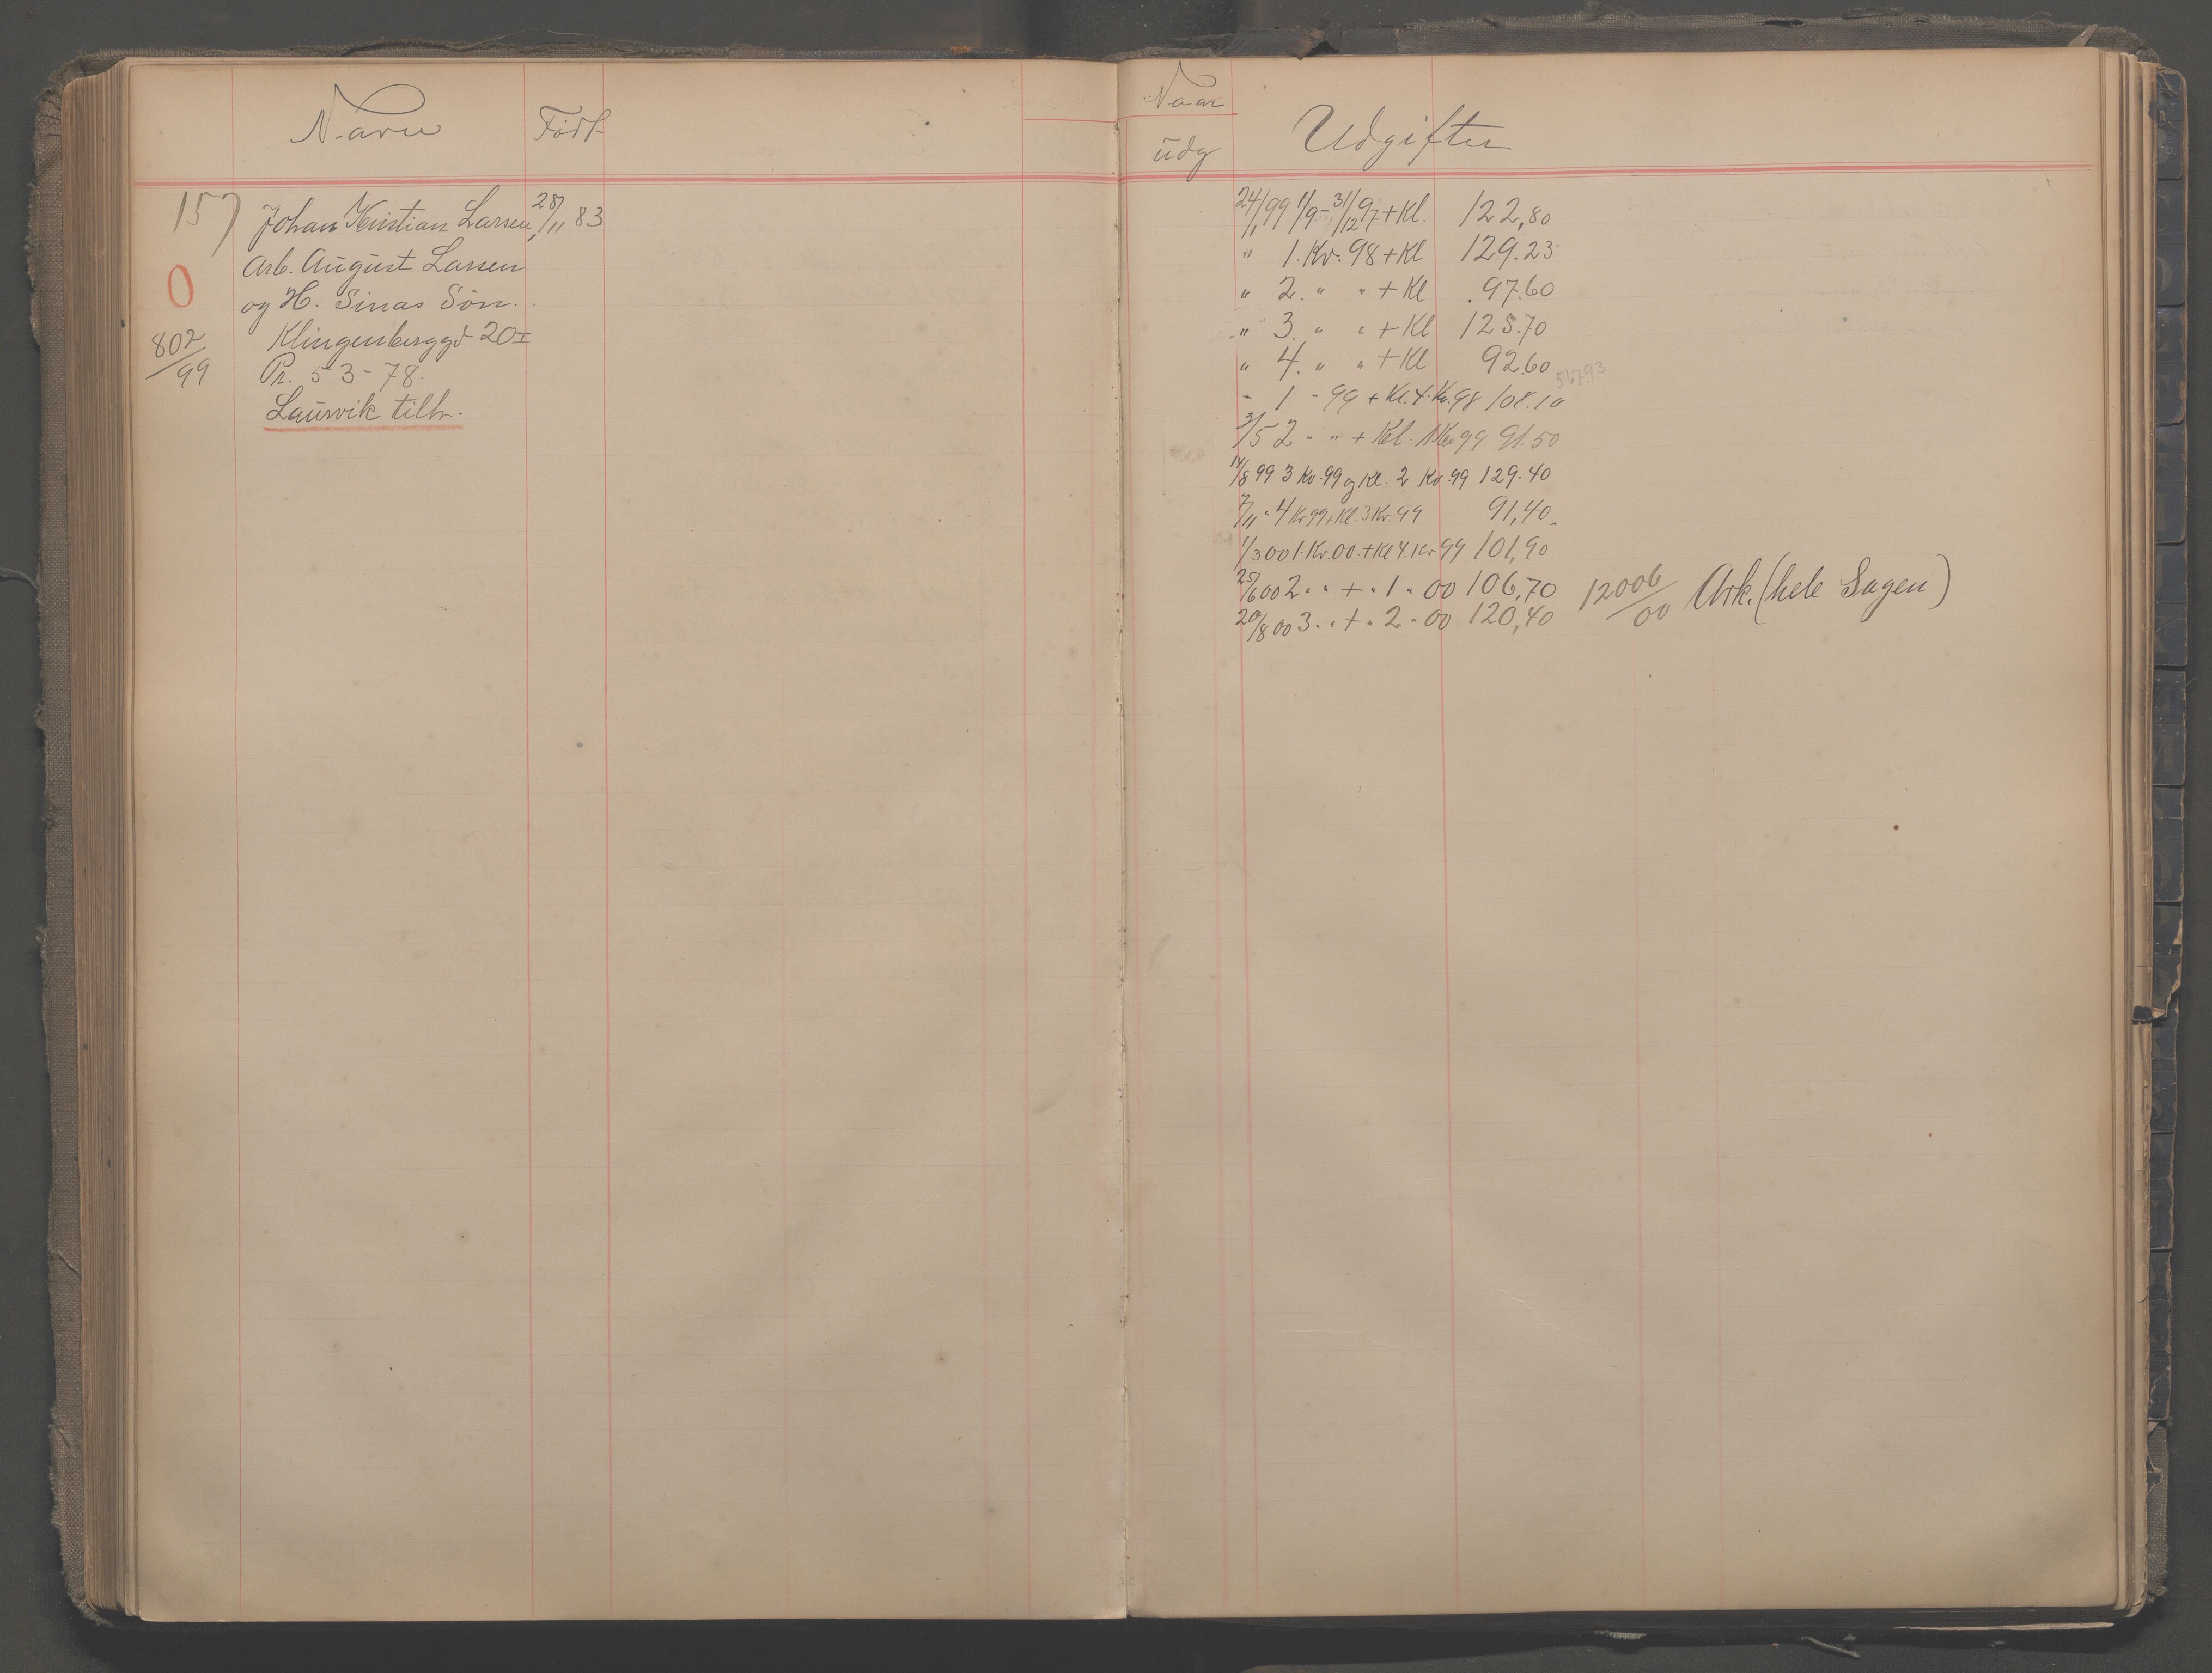 Navn Født
157 Johan Kristian Larsen, 28/11 83
0 Arb. August Larsen
og H. Sinas Sön.
802/99 Klingenberggd 20 I
Pr. 53-78.
Laurvik tilh.
Naar
udg Udgifter
24/1 99 1/9-31/12 97 + Kl. 122,80
" 1. Kv. 98 + Kl 129.23
" 2. " " + Kl 97.60
" 3. " " + Kl 125.70
" 4. " " + Kl 92.60 567.93
" 1 " 99 + Kl. 4. Kv. 98 108.10
3/5 2 " " + Kl. 1 Kv 99 91.50
14/8 99 3 Kv. 99 og Kl. 2 Kv. 99 129.40
7/11 " 4 Kv 99 + Kl. 3 Kv. 99 91,40.
1/3 00 1. Kv. 00. + Kl 4. Kv 99 101,90
25/6 00 2. " + " 1 " 00 106,70 12006/00 Ark. (hele Sagen)
20/8 00 3. " + " 2 " 00 120,40